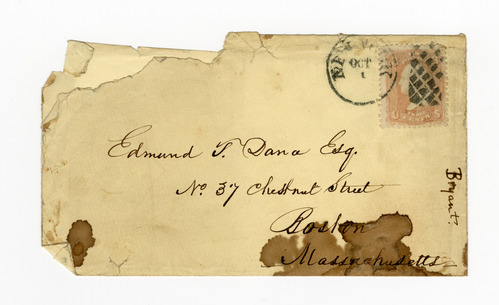 OCT
1
U S
Edmund T. Dana Esq.
No. 37 Chestnut Street
Boston
Massachusetts
Bryant.